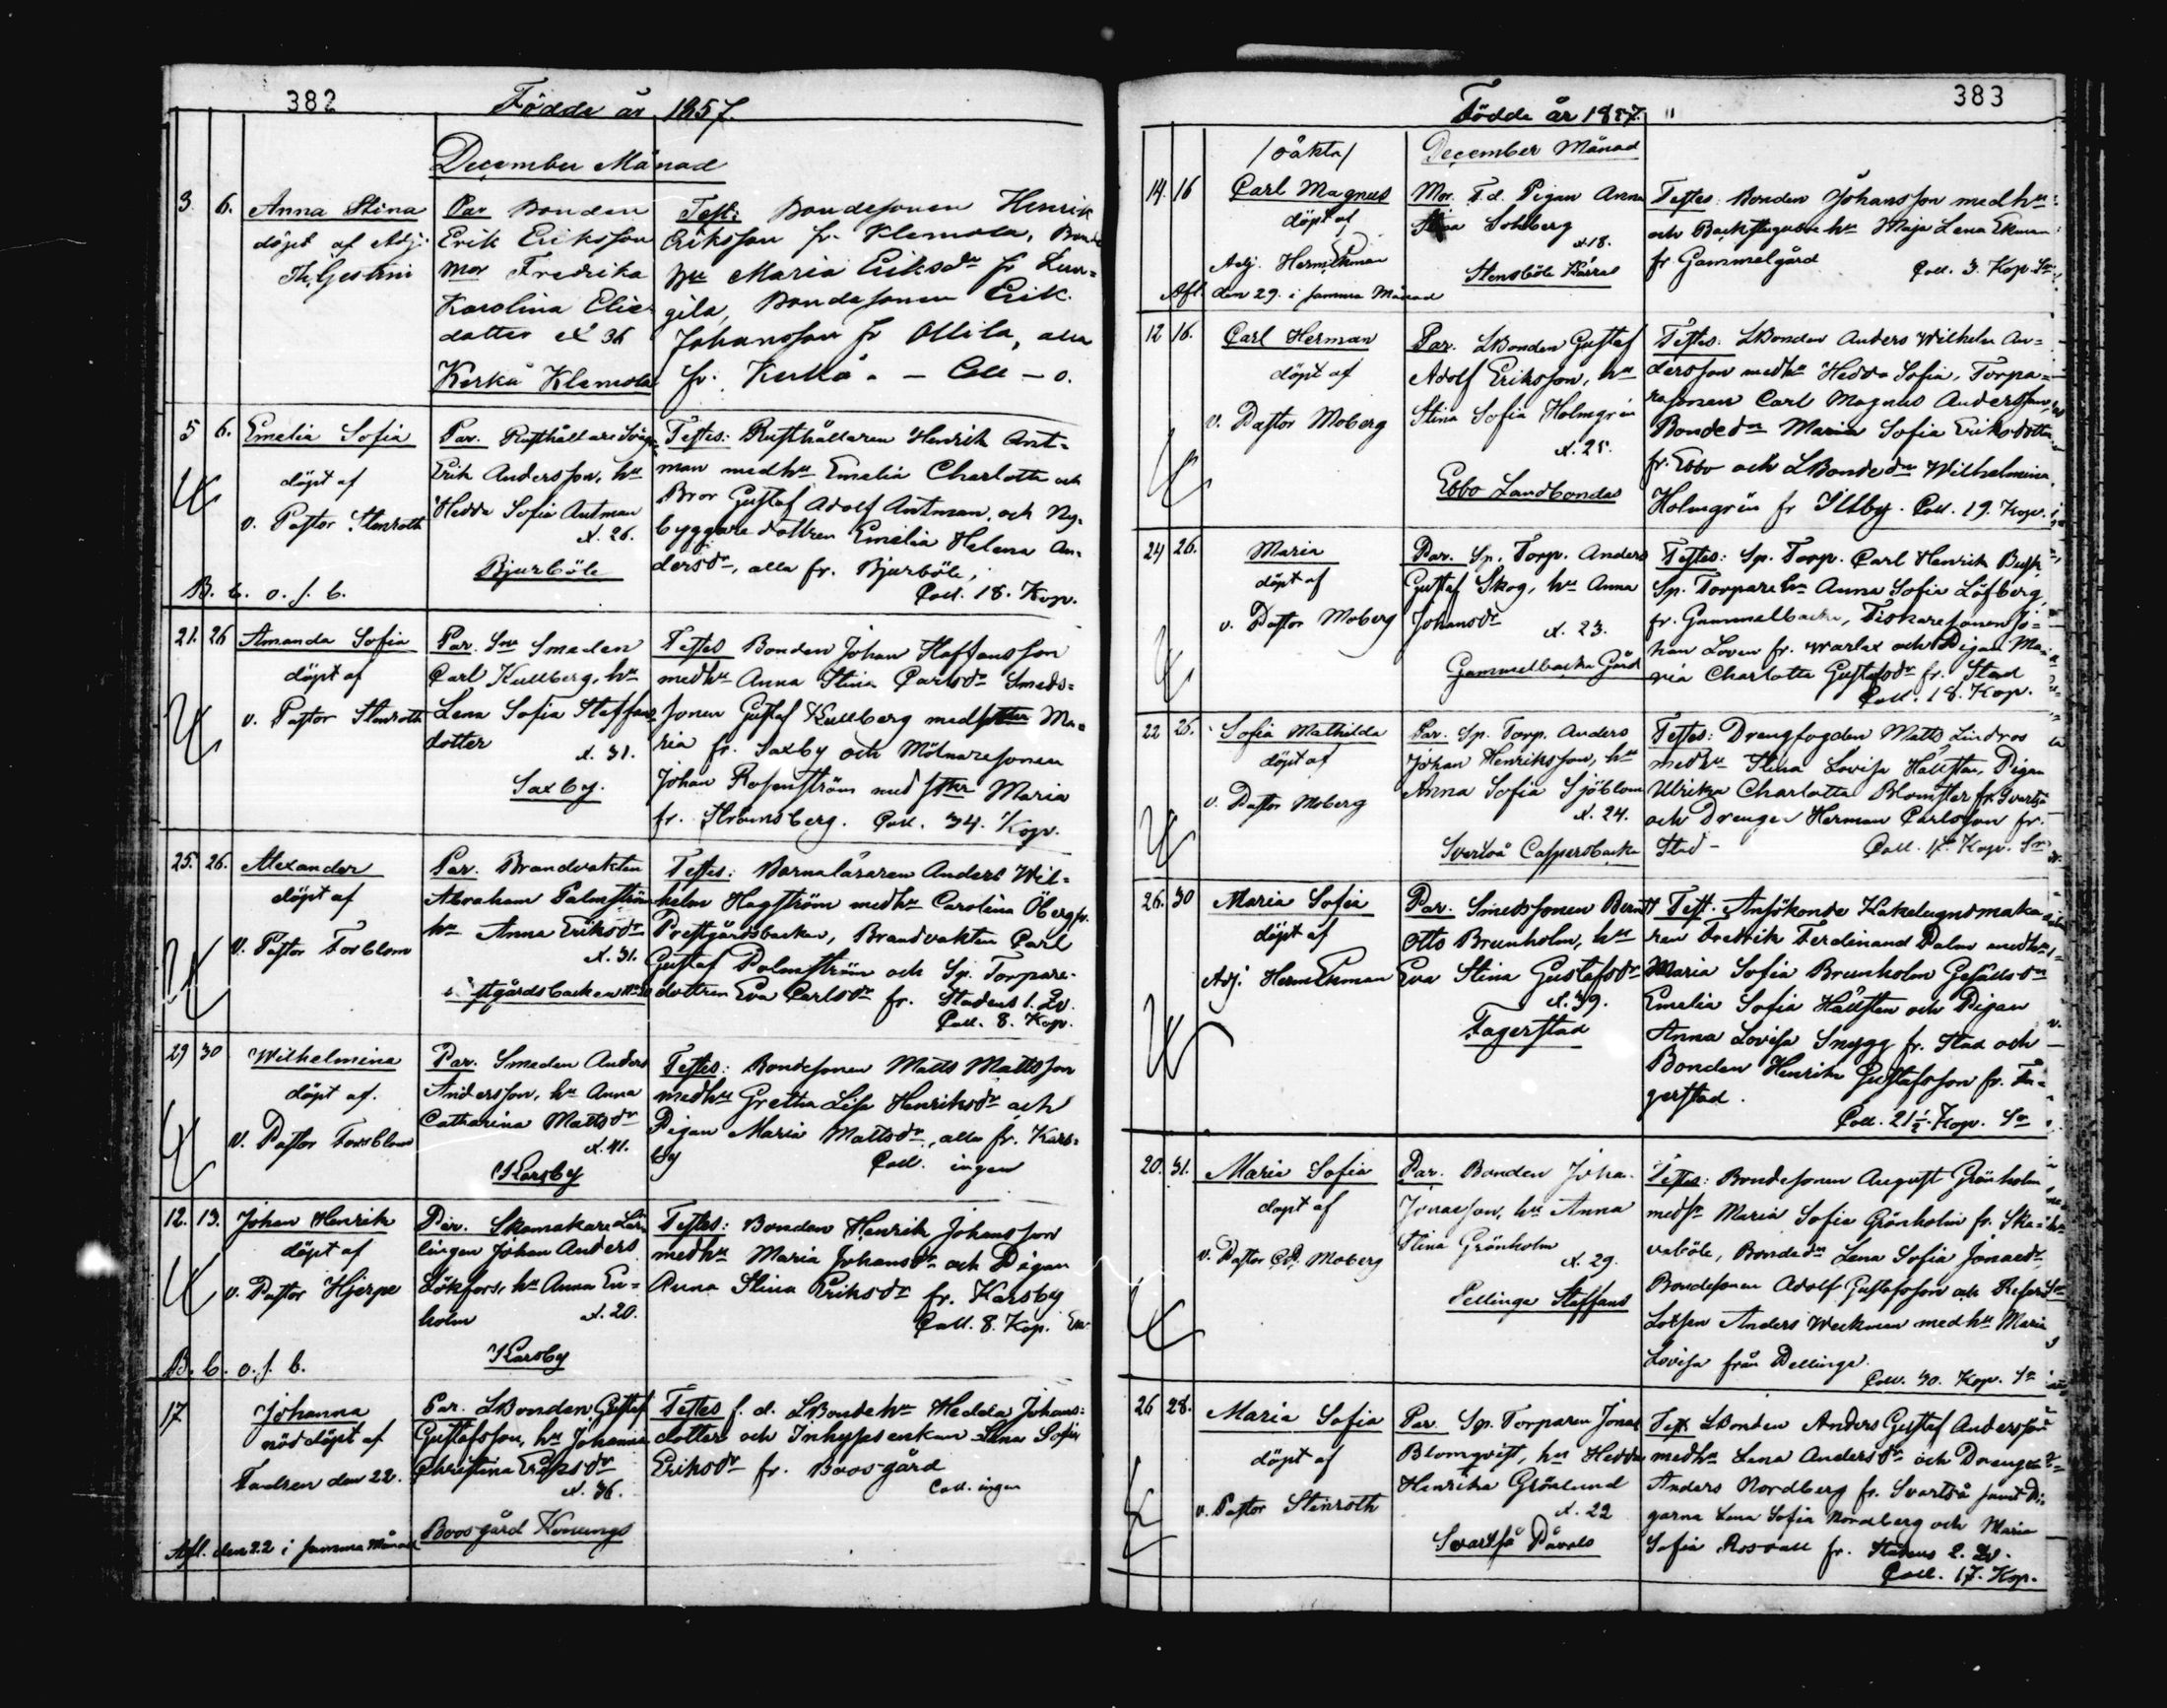 382
Födde år 1857.
December Månad
3. 6. Anna Stina
döpt af Adj:
Par Bonden
Erik Eriksson
Mor Fredrika
Karolina Elies
dotter æt 36
Kerkå Klemola
Test: Bondesonen Henrik
Eriksson fr. Klemola, Bonde
Maria Eriksdr fr
gila, Bondesonen Erik
Johansson fr Ollila, alla
fr. Kerkå. — Coll — 0.
5 6. Emelia Sofia
döpt af
v. Pastor Stenroth
B. b. o. s. b.
Par. Rusthållare
Erik Andersson, hu
Hedda Sofia Antman
æt. 26.
Bjurböle
Testes: Rusthållaren Henrik Ant=
man med hu Emelia Charlotta och
Bror Gustaf Adolf Antman, och Ny=
byggare dottren Emelia Helena An=
dersdr, alla fr. Bjurböle,
Coll. 18. Kop.
21. 26 Amanda Sofia
döpt af
v. Pastor Stenroth
Par. Smeden
Carl Kullberg, hu
Lena Sofia Staffans
dotter
æt. 31.
Saxby.
Testes Bonden Johan Staffansson
med hu Anna Stina Carlsdr Smeds=
sonen Gustaf Kullberg med Ma=
ria fr. Saxby och Mölnaresonen
Johan Rosenström med Maria
fr. Strömsberg. Coll. 34. Kop.
25. 26. Alexander
döpt af
V. Pastor Forsblom
Par. Brandvakten
Abraham Palmström
hu Anna Eriksdr
æt. 31.
Testes: Barnaläraren Anders Wil=
helm Hagström med hu Carolina Öberg fr.
Prestgårdsbacken, Brandvakten Carl
Gustaf Palmström och Sp. Torpare
dottren Eva Carlsdr fr. Stadens 1. Qv.
Coll. 8. Kop.
29 30 Wilhelmina
döpt af.
V. Pastor Forsblom
Par. Smeden Anders
Andersson, hu Anna
Catharina Mattsdr
æt. 41.
Karsby
Testes: Bondesonen Matts Mattsson
med hu Gretha Lisa Henriksdr och
Pigan Maria Mattsdr, alla fr. Kars=
by Coll. ingen
12. 13. Johan Henrik
döpt af
v. Pastor Hjerpe
B. b. o. s. b.
Par. Skomakare Lär
lingen Johan Anders
Lökfors, hu Anna En=
holm æt. 20.
Karsby
Testes: Bonden Henrik Johansson
med hu Maria Johansdr och Pigan
Anna Stina Eriksdr fr. Karsby
Coll. 8. Kop.
17 Johanna
nöddöpt af
Fadren den 22.
Afl. den 22 i samma Månad
Par. LBonden Gustaf
Gustafsson, hu Johanna
Christina Eriksdr
æt. 36.
Boosgård Konungs
Testes f. d. LBonde hu Hedda Johans=
dotter och Inhyses enkan Lena Sofia
Eriksdr fr. Boosgård
Coll. ingen
383
Födde år 1857.
December Månad
/oäkta/
14. 16 Carl Magnus
döpt af
Adj. Herm. Ekman
Afl. den 29. i samma Månad
Mor. T.d. Pigan Anna
Stina Sohlberg
æt 18.
Stensböle
Testes: Bonden Johansson med hu
och Backstugubo hu Maja Lena Ekman
fr Gammelgård
Coll. 3. Kop. Sr
12 16. Carl Herman
döpt af
v. Pastor Moberg
Par. LBonden Gustaf
Adolf Eriksson, hu
Stina Sofia Holmgrén
æt. 25.
Ebbo Landbondas
Testes: LBonden Anders Wilhelm An=
dersson med hu Hedda Sofia, Torpa=
resonen Carl Magnus Andersson,
Bonde dr Maria Sofia Eriksdotter
fr. Ebbo och LBonde dr Wilhelmina
Holmgrén fr Illby. Coll. 19. Kop.
24 26. Maria
döpt af
v. Pastor Moberg
Par. Sp. Torp. Anders
Gustaf Skog, hu Anna
Johansdr
æt. 23.
Gammelbacka Gård
Testes: Sp. Torp. Carl Henrik Busk
Sp. Torpare hu Anna Sofia Löfberg
fr. Gammelbacka, Fiskaresonen Jo=
han Loven fr. Warlax och Pigan Ma=
ria Charlotta Gustafsdr fr. Stad
Coll. 18. Kop.
22 26. Sofia Mathilda
döpt af
v. Pastor Moberg
Par. Sp. Torp. Anders
Johan Henriksson, hu
Anna Sofia Sjöblom
æt. 24.
Svartså Caspersbacka
Testes: Drengfogden Matts Lindros
med hu Stina Lovisa Hållsten, Pigan
Ulrika Charlotta Blomster fr. Svartså
och Drengen Herman Carlsson fr.
Stad — Coll. 17. Kop. Sr
26. 30 Maria Sofia
döpt af
Adj. Herm Ekman
Par. Smedssonen Berndt
Otto Brunholm, hu
Eva Stina Gustafsdr
æt. 39.
Fagerstad
Test. Ansökande Kakelugnsmaka
ren Fredrik Ferdinand Palm med hu
Maria Sofia Brunholm Gesällsdr
Emelia Sofia Hållsten och Pigan
Anna Lovisa Snygg fr. Stad och
Bonden Henrik Gustafsson fr. Fa=
gerstad.
Coll. 21½. Kop. Sr
20. 31. Maria Sofia
döpt af
v. Pastor Moberg
Par. Bonden Joha.
Jonasson, hu Anna
Stina Grönholm
æt. 29.
Pellinge Staffans
Testes: Bondesonen August Grönholm
med Maria Sofia Grönholm fr. Ska=
vaböle, Bondedr Lena Sofia Jonaedr
Bondesonen Adolf Gustafsson och
Lotsen Anders Weckman med hu Maria
Lovisa från Pellinge.
Coll. 30. Kop. Sr
26 28. Maria Sofia
döpt af
v. Pastor Stenroth
Par. Sp. Torparen Jonas
Blomqvist, hu Hedda
Henrika Grönlund
æt. 22
Svartså Påvals
Test LBonden Anders Gustaf Andersson
med hu Lena Andersdr och Drengen
Anders Nordberg fr. Svartså samt Pi
garna Lena Sofia Nordberg och Maria
Sofia Rosvall fr. Stadens 2. Qv.
Coll. 17. Kop.